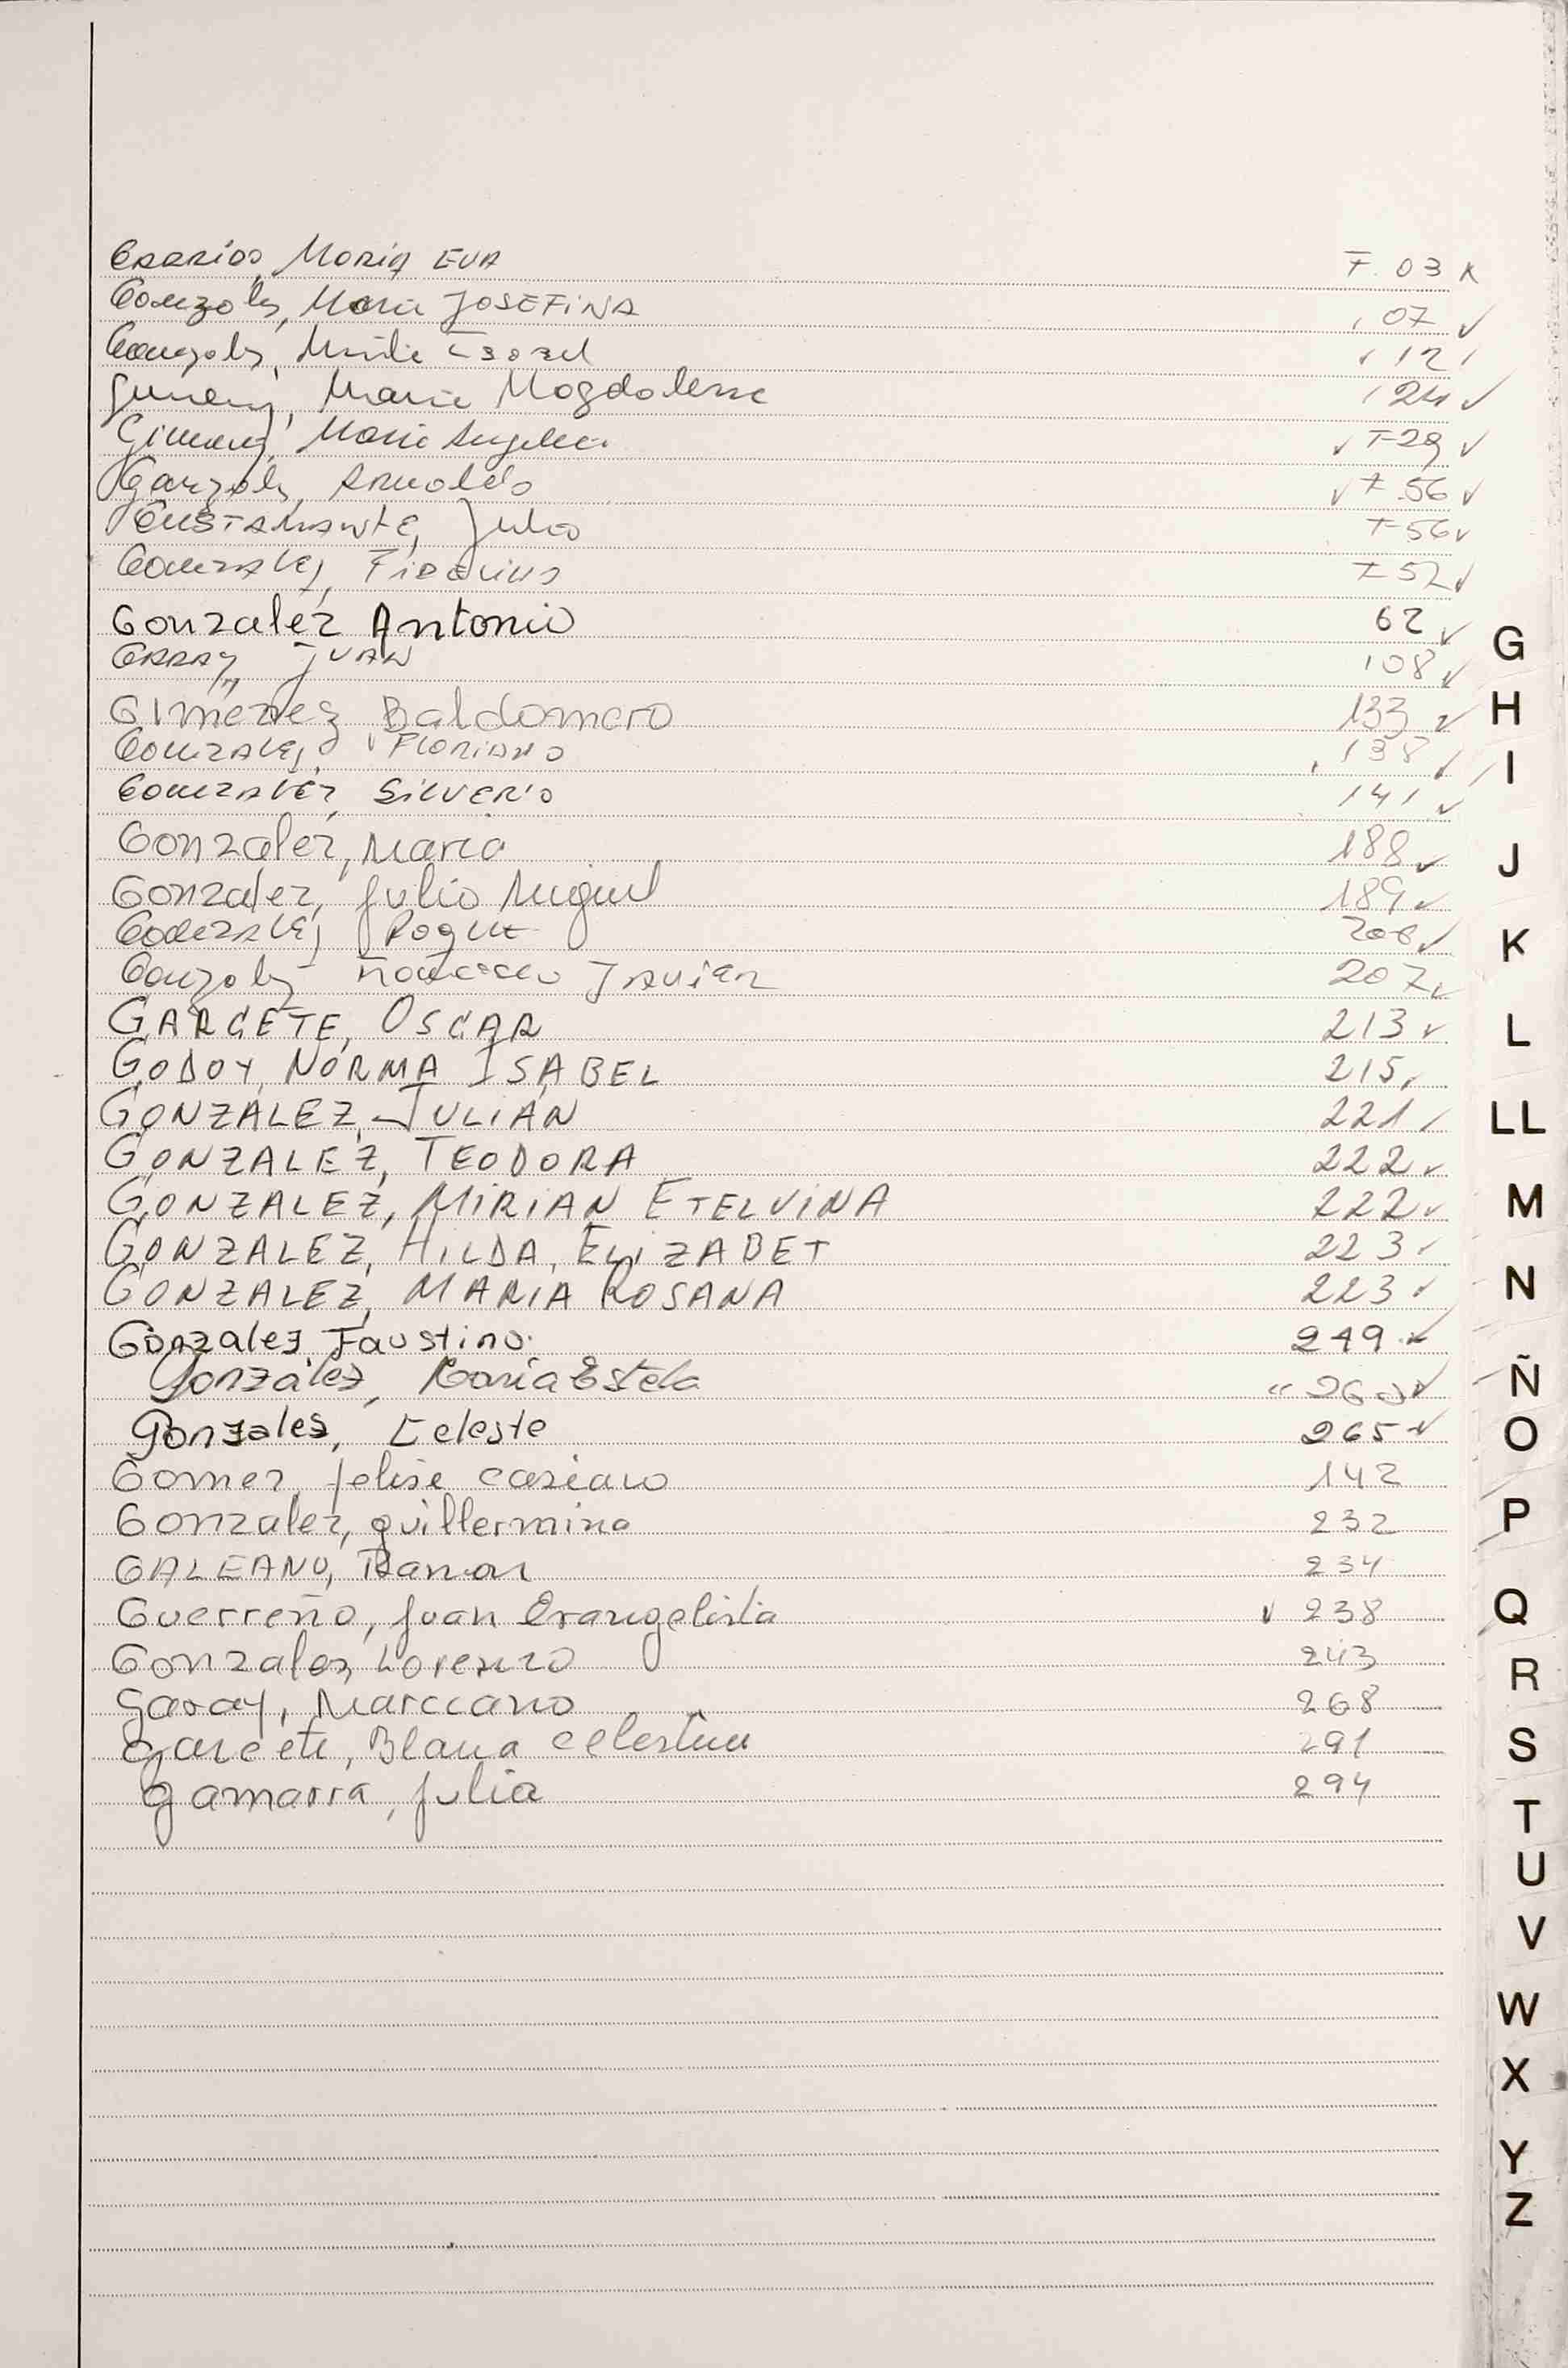 Gerrios, Maria EVA F. 03
Gonzalez, Maria JOSEFINA 07 ✓
Gonzalez, Isabel 121
Gimenez, Maria Magdalena 24 ✓
Gimenez, Maria Angelica ✓ F 29 ✓
Gonzalez, Arnoldo ✓ F. 56 ✓
GUSTAMANTE, Julio F 56 ✓
GONZALEZ, F 52 ✓
Gonzalez Antonio 62 ✓
GARAY, JUAN 108 ✓
GIMENEZ Baldomero 133 ✓
GONZALEZ, FLORIANO 138 ✓
GONZALEZ, SILVERIO 141 ✓
Gonzalez, Maria 188 ✓
Gonzalez, Julio Miguel 189 ✓
GONZALEZ, Roque ✓
Gonzalez JAVIER 207 ✓
GARCETE, OSCAR 213 ✓
GODOY, NORMA ISABEL 215
GONZALEZ, JULIAN 221 ✓
GONZALEZ, TEODORA 222 ✓
GONZALEZ, MIRIAN ETELVINA 222 ✓
GONZALEZ, HILDA, ELIZABET 223 ✓
GONZALEZ, MARIA ROSANA 223 ✓
Gonzalez Faustino. 249 ✓
González, María Estela " ✓
Gonzales, Celeste 265 ✓
Gomez, felise casiano 142
Gonzalez, guillermina 232
GALEANO, Ramon 234
Guerreño, Juan Evangelista ✓ 238
Gonzalez Lorenzo 243
Garay, Marciano 268
Garcete, Blanca celestina 291
gamarra, julia 294
G
H
I
J
K
L
LL
M
N
Ñ
O
P
Q
R
S
T
U
V
W
X
Y
Z